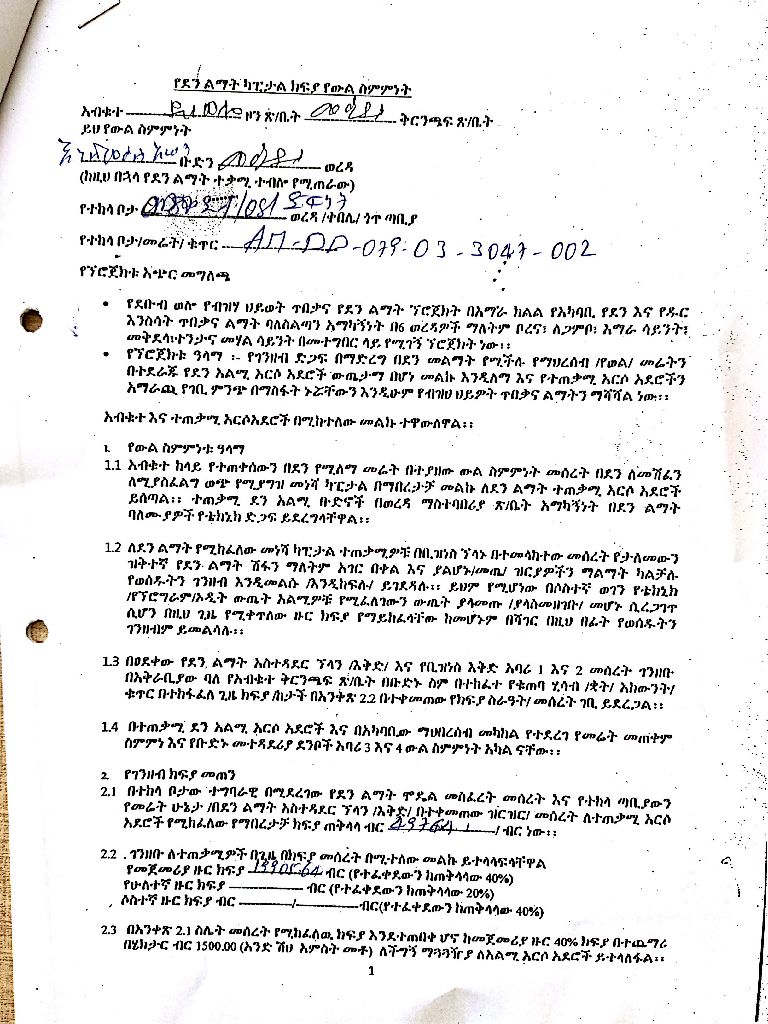 የደን ልማት ካፒታል ክፍያ የውል ስምምነት
አብቁተ ዞን ጽ/ቤት ቅርንጫፍ ጽ/ቤት
ይህ የውል ስምምነት
ቡድን ወረዳ
(ከዚህ በኋላ የደን ልማት ተቃሚ ተብሎ የሚጠራው)
የተከላ ቦታ ወረዳ /ቀበሌ/ ጎጥ ጣቢያ
የተከላ ቦታ/መሬት/ ቁጥር AM-DD-079-03-3047-002
የፕሮጀክቱ አጭር መግለጫ
• የደቡብ ወሎ የብዝሃ ህይወት ጥበቃና የደን ልማት ፕሮጀክት በአማራ ክልል የአካባቢ የደን እና የዱር
እንስሳት ጥበቃና ልማት ባለስልጣን አማካኝነት በ6 ወረዳዎች ማለትም ቦረና፣ ለጋምቦ፣ አማራ ሳይንት፣
መቅደላ፣ተንታና መሃል ሳይንት በመተግበር ላይ የሚገኝ ፕሮጀክት ነው፡፡
• የፕሮጀክቱ ዓላማ ፡- የገንዘብ ድጋፍ በማድረግ በደን መልማት የሚችሉ የማህረሰብ /የወል/ መሬትን
በተደራጁ የደን አልሚ አርሶ አደሮች ውጤታማ በሆነ መልኩ እንዲለማ እና የተጠቃሚ አርሶ አደሮችን
አማራጪ የገቢ ምንጭ በማስፋት ኑሯቸውን እንዲሁም የብዝሀ ህይዎት ጥበቃና ልማትን ማሻሻል ነው፡፡
አብቁተ እና ተጠቃሚ አርሶአደሮች በሚከተለው መልኩ ተዋውለዋል፡፡
1. የውል ስምምነቱ ዓላማ
1.1 አብቁተ ከላይ የተጠቀሰውን በደን የሚለማ መሬት በተያዘው ውል ስምምነት መሰረት በደን ለመሸፈን
ለሚያስፈልግ ወጭ የሚያግዝ መነሻ ካፒታል በማበረታቻ መልኩ ለደን ልማት ተጠቃሚ አርሶ አደሮች
ይሰጣል፡፡ ተጠቃሚ ደን አልሚ ቡድኖች በወረዳ ማስተባበሪያ ጽ/ቤት አማካኝነት በደን ልማት
ባለሙያዎች የቴክኒክ ድጋፍ ይደረግላቸዋል፡፡
1.2 ለደን ልማት የሚከፈለው መነሻ ካፒታል ተጠቃሚዎቹ በቢዝነስ ፕላኑ በተመላከተው መሰረት የታለመውን
ዝቅተኛ የደን ልማት ሽፋን ማለትም አገር በቀል እና ያልሆኑ/መጤ/ ዝርያዎችን ማልማት ካልቻሉ
የወሰዱትን ገንዘብ እንዲመልሱ /እንዲከፍሉ/ ይገደዳሉ፡፡ ይህም የሚሆነው በሶስተኛ ወገን የቴክኒክ
/የፕሮግራም/ኦዲት ውጤት አልሚዎቹ የሚፈለገውን ውጤት ያላመጡ /ያላስመዘገቡ/ መሆኑ ሲረጋገጥ
ሲሆን በዚህ ጊዜ የሚቀጥለው ዙር ክፍያ የማይከፈላቸው ከመሆኑም በሻገር በዚህ በፊት የወሰዱትን
ገንዘብም ይመልሳሉ፡፡
1.3 በፀደቀው የደን ልማት አስተዳደር ፕላን /እቅድ/ እና የቢዝነስ እቅድ አባሪ 1 እና 2 መሰረት ገንዘቡ
በአቅራቢያው ባለ የአብቁተ ቅርንጫፍ ጽ/ቤት በቡድኑ ስም በተከፈተ የቁጠባ ሂሳብ /ቋት/ አካውንት/
ቁጥር በተከፋፈለ ጊዜ ክፍያ /ከታች በአንቀጽ 2.2 በተቀመጠው የክፍያ ስራዓት/ መሰረት ገቢ ይደረጋል፡፡
1.4 በተጠቃሚ ደን አልሚ አርሶ አደሮች እና በአካባቢው ማህበረሰብ መካከል የተደረገ የመሬት መጠቀም
ስምምነ እና የቡድኑ መተዳደሪያ ደንቦች አባሪ 3 እና 4 ውል ስምምነት አካል ናቸው፡፡
2. የገንዘብ ክፍያ መጠን
2.1 በተከላ ቦታው ተግባራዊ በሚደረገው የደን ልማት ሞዴል መስፈረት መሰረት እና የተከላ ጣቢያውን
የመሬት ሁኔታ /በደን ልማት አስተዳደር ፕላን /እቅድ/ በተቀመጠው ዝርዝር/ መሰረት ለተጠቃሚ አርሶ
አደሮች የሚከፈለው የማበረታቻ ክፍያ ጠቅላላ ብር 49764 / ብር ነው፡፡
2.2 . ገንዘቡ ለተጠቃሚዎች በጊዜ በክፍያ መሰረት በሚተለው መልኩ ይተላላፍላቸዋል
የመጀመሪያ ዙር ክፍያ 19905.64 ብር (የተፈቀደውን ከጠቅላላው 40%)
የሁለተኛ ዙር ክፍያ ብር (የተፈቀደውን ከጠቅላላው 20%)
ሶስተኛ ዙር ክፍያ ብር / ብር(የተፈቀደውን ከጠቅላላው 40%)
2.3 በአንቀጽ 2.1 ስሌት መሰረት የሚከፈለዉ ክፍያ እንደተጠበቀ ሆኖ ከመጀመሪያ ዙር 40% ክፍያ በተጨማሪ
በሄክታር ብር 1500.00 (አንድ ሽህ አምስት መቶ) ለችግኝ ማጓጓዥያ ለአልሚ አርሶ አደሮች ይተላለፋል፡፡
1